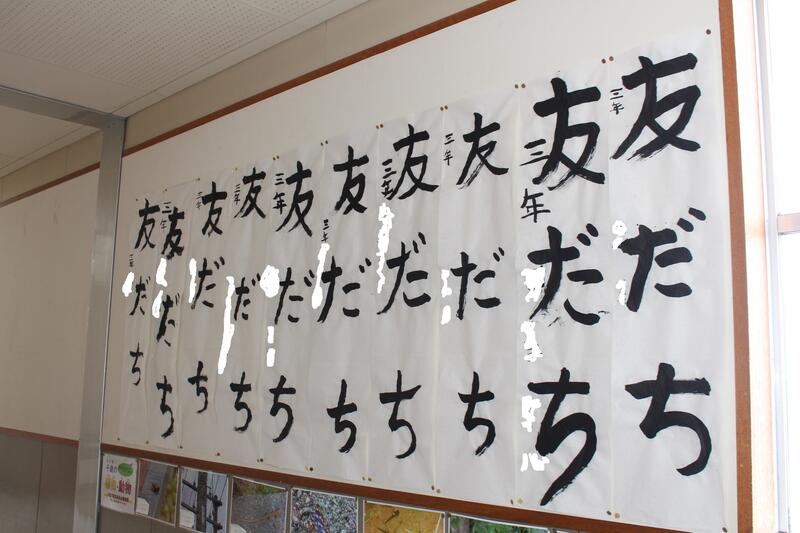 友だち
三年
友だち
三年
友だち
三年
友だち
三年
友だち
三年
友だち
三年
友だち
三年
友だち
三年
友だち
三年
友だち
三年